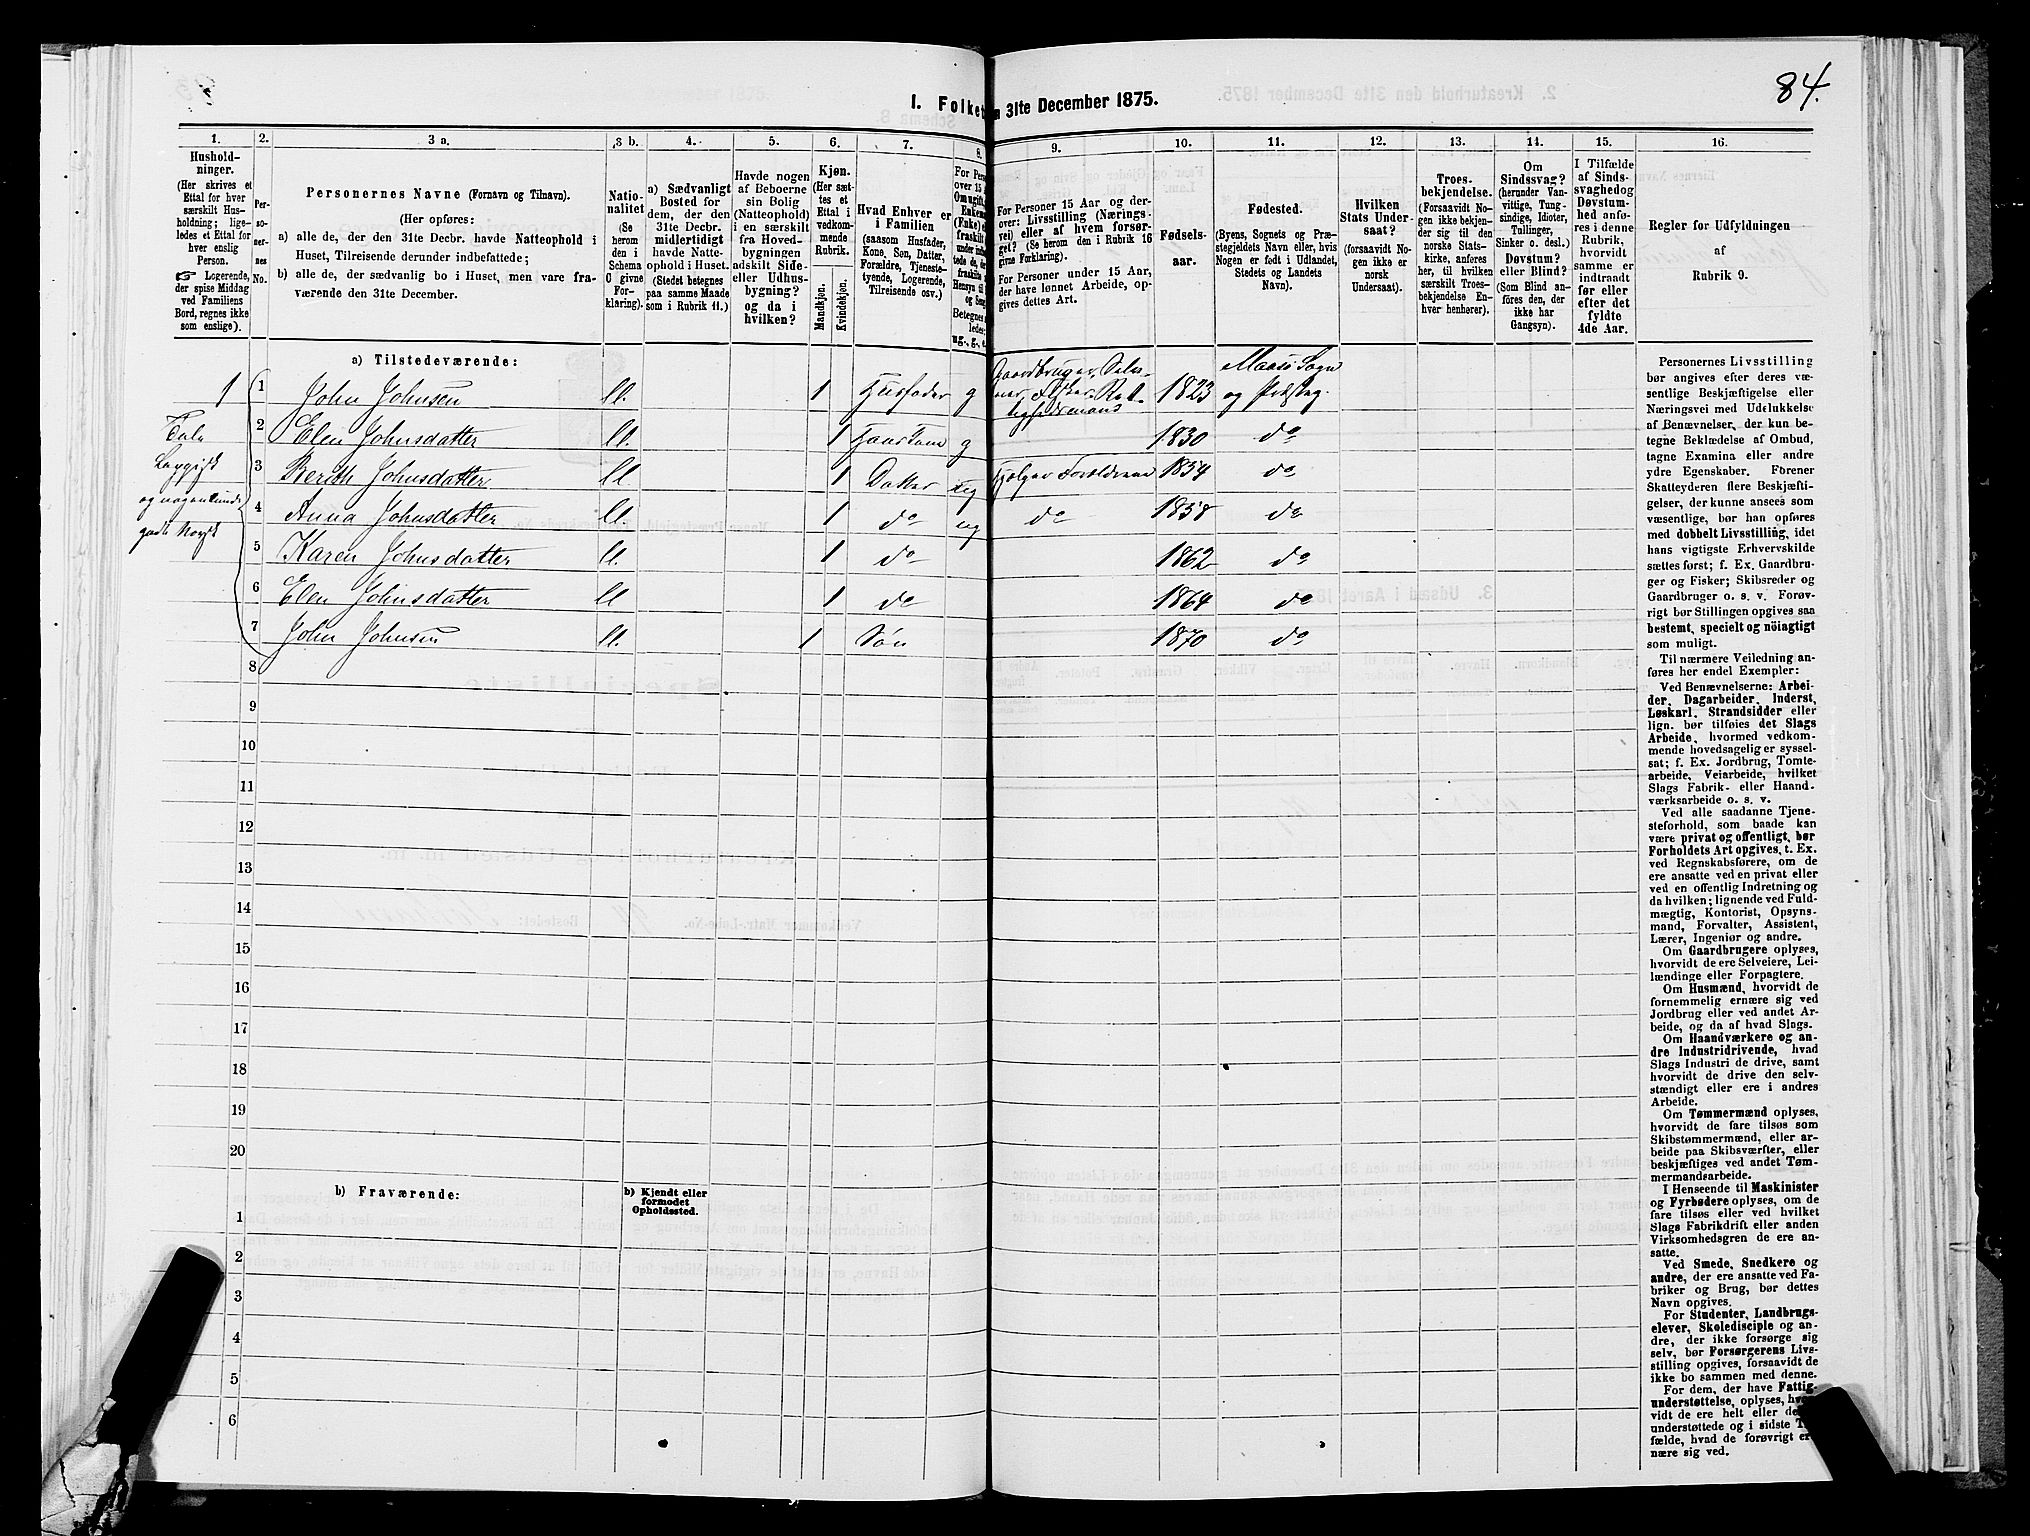 84.
I. Folket
n 31te December 1875.
1.
2.
3 a.
3 b.
4.
5.
6.
7.
8.
9.
10.
11.
12.
13.
14.
15.
16.
Hushold-
ninger.
(Her skrives et
Ettal for hver
særskilt Hus-
holdning; lige-
ledes et Ettal for
hver enslig
Person.
☞ Logerende,
der spise Middag
ved Familiens
Bord, regnes ikke
som enslige).
Per-
so-
ner-
nes
No.
Personernes Navne (Fornavn og Tilnavn).
(Her opføres:
a) alle de, der den 31te Decbr. havde Natteophold i
Huset, Tilreisende derunder indbefattede;
b) alle de, der sædvanlig bo i Huset, men vare fra-
værende den 31te December.
Natio-
nalitet
(Se
herom
den i
Schema
0 givne
For-
klaring).
a) Sædvanligt
Bosted for
dem, der den
31te Decbr.
midlertidigt
havde Natte-
ophold i Huset.
(Stedet betegnes
paa samme Maade
som i Rubrik 11.)
Havde nogen
af Beboerne
sin Bolig
(Natteophold)
i en særskilt
fra Hoved-
bygningen
adskilt Side-
eller Udhus-
bygning?
og da i
hvilken?
Kjøn.
(Her sæt-
tes et
Ettal i
vedkom-
mende
Rubrik.
Mandkjøn.
Kvindekjøn.
Hvad Enhver er
i Familien
(saasom Husfader,
Kone, Søn, Datter,
Forældre, Tjeneste-
tyende, Logerende,
Tilreisende osv.)
For Personer 15 Aar og der-
over: Livsstilling (Nærings-
vei) eller af hvem forsør-
get? (Se herom den i Rubrik 16
givne Førklaring).
For Personer under 15 Aar,
der have lønnet Arbeide, op-
gives dettes Art.
Fødsels-
aar.
Fødested.
(Byens, Sognets og Præ-
stegjeldets Navn eller, hvis
Nogen er født i Udlandet,
Stedets og Landets
Navn).
Hvilken
Stats Under-
saat?
(forsaavidt No-
gen ikke er
norsk
Undersaat).
Troes-
bekjendelse.
(Forsaavidt No-
gen ikke bekjen-
der sig til den
norske Stats-
kirke, anføres
her, til hvilken
særskilt Troes-
bekjendelse En-
hver henhører).
Om
Sindssvag?
(herunder Van-
vittige, Tung-
sindige, Idioter,
Tullinger,
Sinker o. desl.)
Døvstum?
eller Blind?
(Som Blind an-
føres den, der
ikke har
Gangsyn).
I Tilfælde
af Sinds-
svaghed og
Døvstum-
hed anfø-
res i denne
Rubrik,
hvorvidt
samme er
indtrandt
før eller
efter det
fyldte
4de Aar.
Regler for Udfyldningen
af
Rubrik 9.
a) Tilstedeværende:
1 1 John Johnsen ll. 1 Husfader g 1823 Maasø Sogn
2 Elen Johnsdatter ll. 1 g 1830 do
3 Berith Johnsdatter ll 1 Datter ug Hjelper Forældrene 1854 do
4 Anna Johnsdatter ll. 1 do ug do 1858 do
5 Karen Johnsdatter ll. 1 do 1862 do
6 Elen Johnsdatter ll 1 do 1864 do
7 John Johnsen ll. 1 Søn 1870 do
Tale
Lappisk
godt Norsk
8
9
10
11
12
13
14
15
16
17
18
19
20
b) Fraværende:
b) Kjendt eller
formodet
Opholdssted.
1
2
3
4
5
6
Personernes Livsstilling
bør angives efter deres væ-
sentlige Beskjæftigelse eller
Næringsvei med Udelukkelse
af Benævnelser, der kun be-
tegne Beklædelse af Ombud,
tagne Examina eller andre
ydre Egenskaber. Forener
Skatteyderen flere Beskjæfti-
gelser, der kunne ansees som
væsentlige, bør han opføres
med dobbelt Livsstilling, idet
hans vigtigste Erhvervskilde
sættes først; f. Ex. Gaardbru-
ger og Fisker; Skibsreder og
Gaardbruger o. s. v. Forøv-
rigt bør Stillingen opgives saa
bestemt, specielt og nöiagtigt
som muligt.
Til nærmere Veiledning an-
føres her endel Exempler:
Ved Benævnelserne: Arbei-
der, Dagarbeider, Inderst,
Løskarl, Strandsidder eller
lign. bør tilføies det Slags
Arbeide, hvormed vedkom-
mende hovedsagelig er syssel-
sat; f. Ex. Jordbrug, Tomte-
arbeide, Veiarbeide, hvilket
Slags Fabrik- eller Haand-
værksarbeide o. s. v.
Ved alle saadanne Tjene-
steforhold, som baade kan
være privat og offentligt, bør
Forholdets Art opgives, t. Ex.
ved Regnskabsførere, om de
ere ansatte ved en privat eller
ved en offentlig Indretning og
da hvilken; lignende ved Fuld-
mægtig, Kontorist, Opsyns-
mand, Forvalter, Assistent,
Lærer, Ingeniør og andre.
Om Gaardbrugere oplyses,
hvorvidt de ere Selveiere, Lei-
lændinge eller Forpagtere.
Om Husmænd, hvorvidt de
fornemmelig ernære sig ved
Jordbrug eller ved andet Ar-
beide, og da af hvad Slags.
Om Haandværkere og an-
dre Industridrivende, hvad
Slags Industri de drive, samt
hvorvidt de drive den selv-
stændigt eller ere i andres
Arbeide.
Om Tømmermænd oplyses,
hvorvidt de fare tilsøs som
Skibstømmermænd, eller ar-
beide paa Skibsværfter, eller
beskjæftiges ved andet Tøm-
mermandsarbeide.
I Henseende til Maskinister
og Fyrbødere oplyses, om de
fare tilsøs eller ved hvilket
Slags Fabrikdrift eller anden
Virksomhedsgren de ere an-
satte.
Ved Smede, Snedkere og
andre, der ere ansatte ved Fa-
briker og Brug, bør dettes
Navn opgives.
For Studenter, Landbrugs-
elever, Skoledisciple og an-
dre, der ikke forsørge sig
selv, bør Forsørgerens Livs-
stilling opgives, forsaavidt de
ikke bo sammen med denne.
For dem, der have Fattig-
understøttelse, oplyses,
vidt de ere helt eller
understøttede og i sidste
fælde, hvad de forøvrigt
nære sig ved.